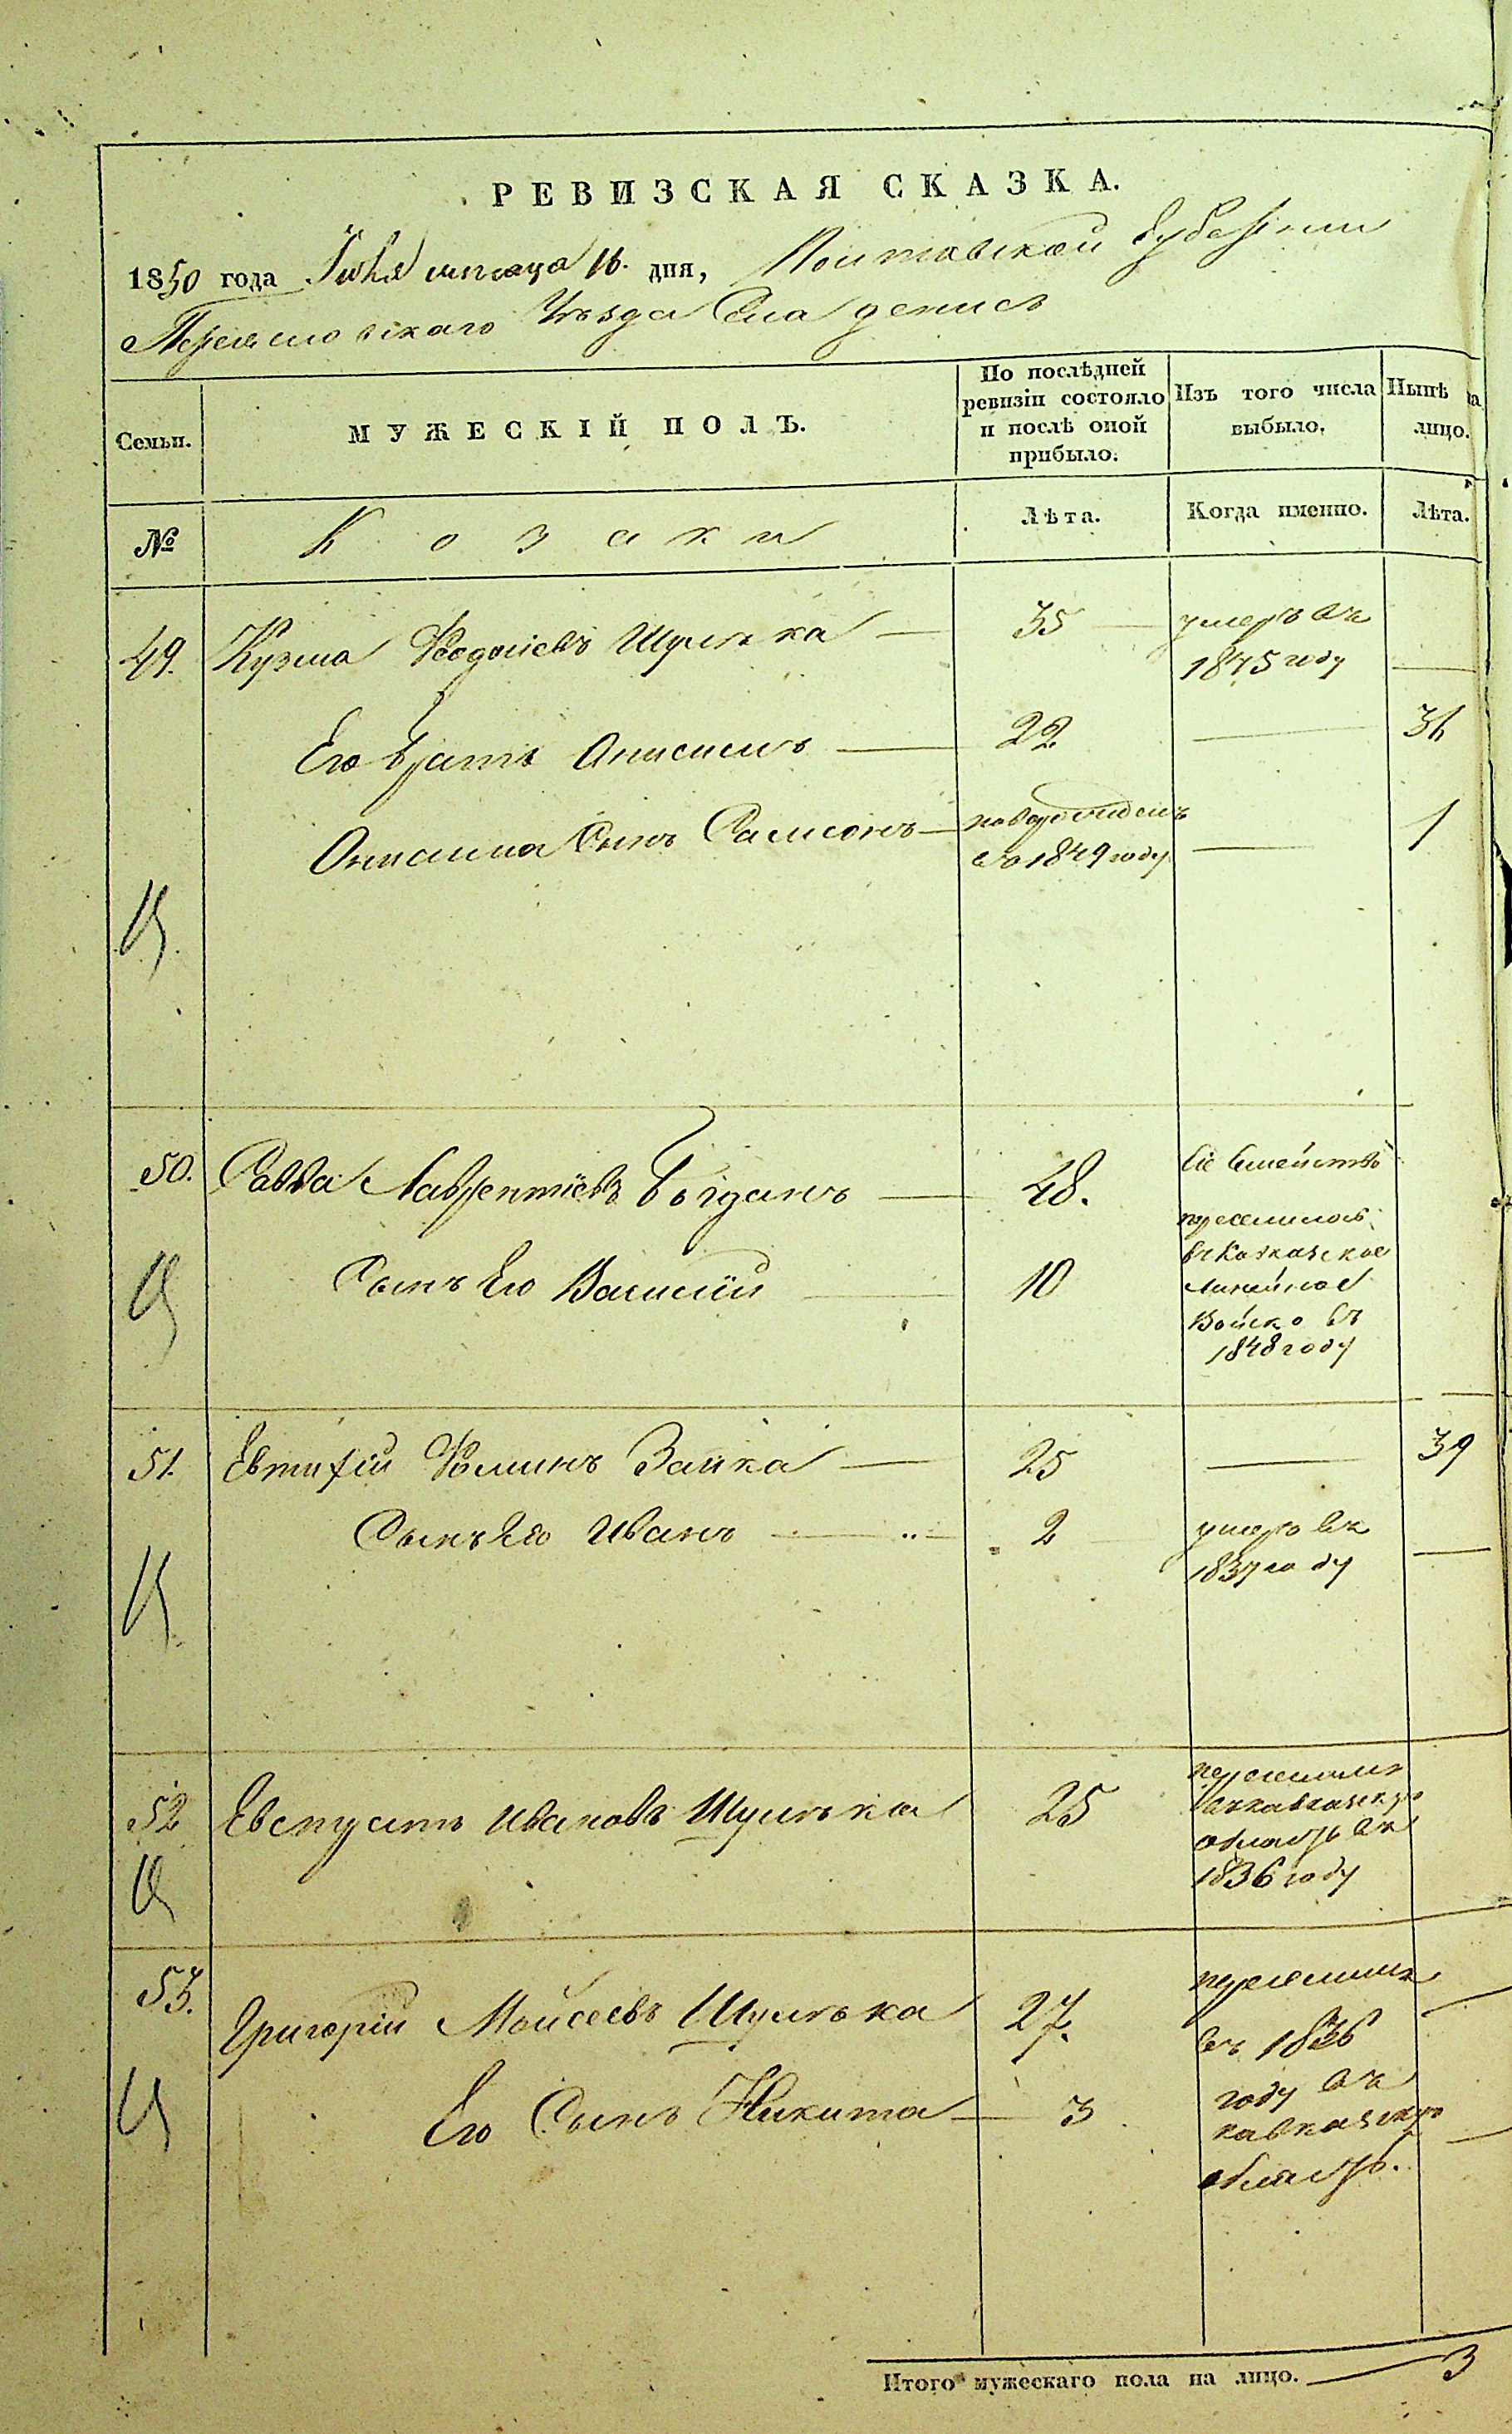 РЕВИЗСКАЯ СКАЗКА.
1850 года Іюля месяца 16. дня, Полтавской Губерніи
Переяславскаго Уѣзда Села денисъ
Семьи.
МУЖЕСКІЙ ПОЛЪ.
По послѣдней
ревизіи состояло
и послѣ оной
прибыло.
Изъ того числа
выбыло.
Нынѣ на
лицо.
№
Козаки
Лѣта.
Когда именно.
Лѣта.
49. Кузма Феодосіевъ Шулѣка — 35 — умеръ въ
1845 году —
Его братъ Онисимъ — 22 — 36
Онисима Сынъ Самсонъ — новорожденъ — 1
въ 1849 году
50. Савва Лаврентіевъ Богданъ — 48. Сіе Семейство
переселилось
въ Кавказское
Сынъ Его Василій — 10 Линейное
Войско въ
1848 году
51. Евтихій Фоминъ Заика — 25 — 39
Сынъ Его Иванъ — 2 умеръ въ
1837 году —
52 Евстратъ Ивановъ Шулѣка 25 переселилъ
въ кавказскую
область въ
1836 году
53. Григорій Мойсеевъ Шулѣка 27. переселил
въ 1836
году въ
Его Сынъ Никита — 3 кавказскую
область.
Итого мужескаго пола на лицо. — 3